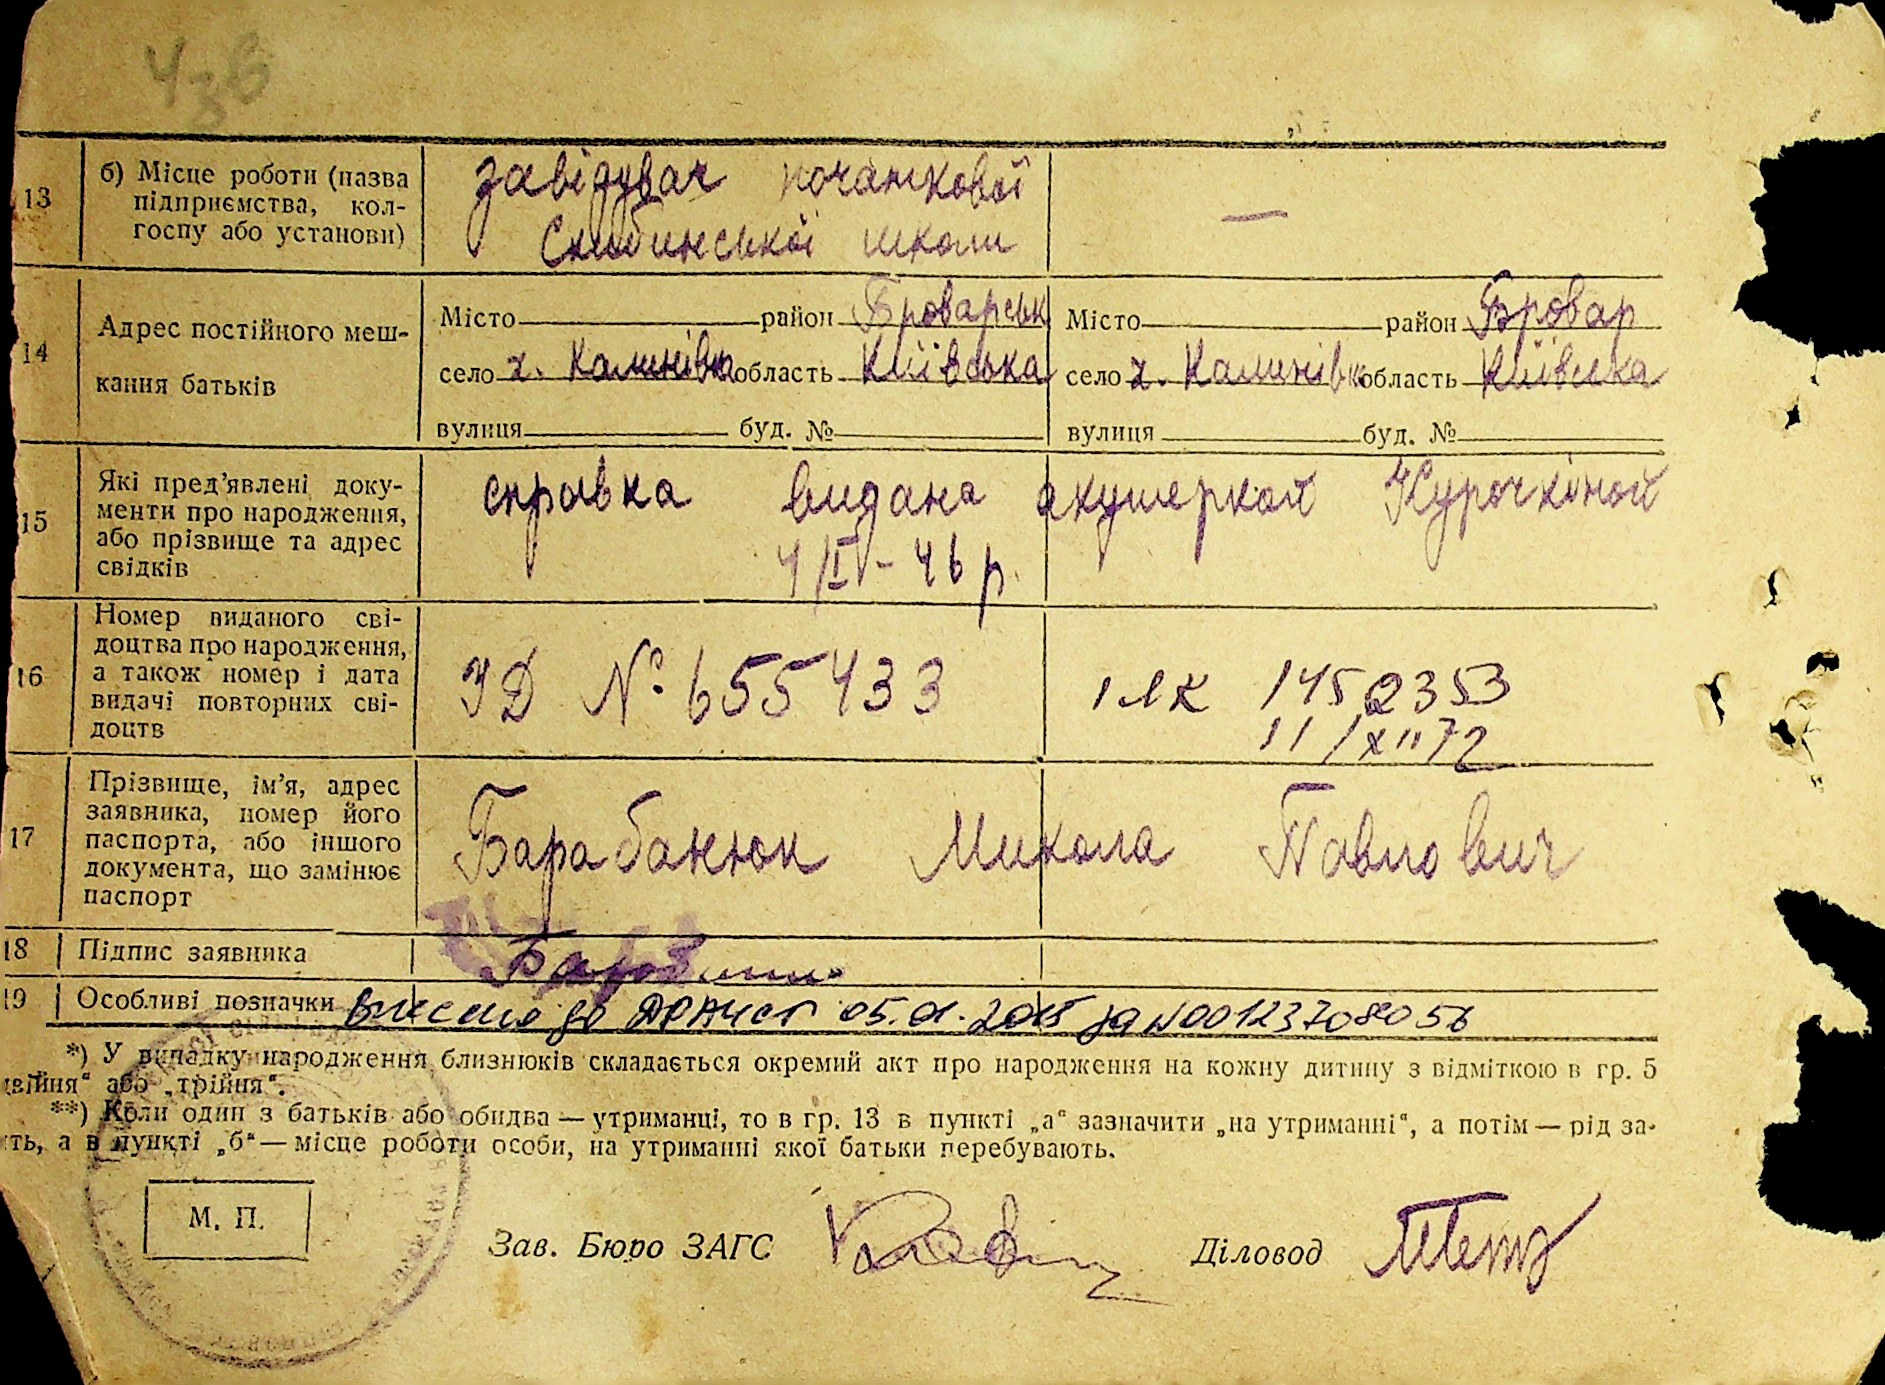 13
б) Місце роботи (назва
підприємства, кол-
госпу або установи)
завідувач початкової
школи
—
14
Адрес постійного меш-
кання батьків
Місто район Броварськ
село х. Калинівка область Київська
вулиця буд. №
Місто район Бровар
село х. Калинівк область Київська
вулиця буд. №
15
Які пред’явлені доку-
менти про народження,
або прізвище та адрес
свідків
справка видана акушеркой Курочкіной
46 р.
16
Номер виданого сві-
доцтва про народження,
а також номер і дата
видачі повторних сві-
доцтв
№ 655433
1452353
17
Прізвище, ім’я, адрес
заявника, номер його
паспорта, або іншого
документа, що замінює
паспорт
Барабанюк Микола Павлович
18
Підпис заявника
19
Особливі позначки
внесено до ДРАЦСГ 05.01.2015 за №00123708056
*) У випадку народження близнюків складається окремий акт про народження на кожну дитину з відміткою в гр. 5
двійня“ або „трійня“.
**) Коли один з батьків або обидва — утриманці, то в гр. 13 в пункті „а“ зазначити „на утриманні“, а потім — рід за-
ть, а в пункті „б“ — місце роботи особи, на утриманні якої батьки перебувають.
М. П.
Зав. Бюро ЗАГС
Діловод